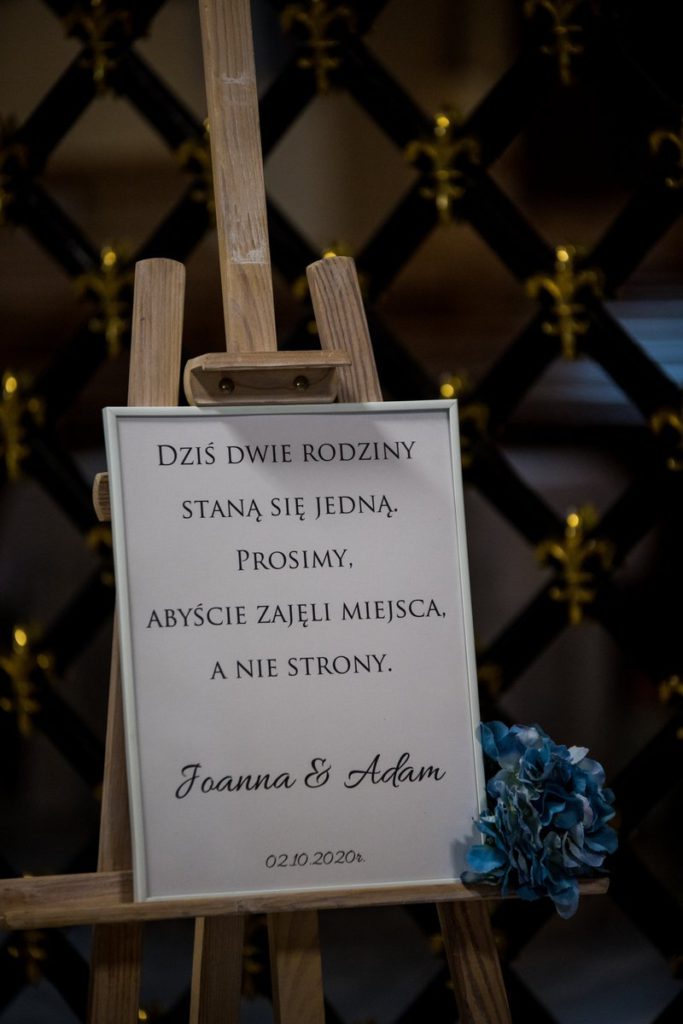 Dziś dwie rodziny
staną się jedną.
Prosimy,
abyście zajęli miejsca,
a nie strony.
Joanna & Adam
02.10.2020r.